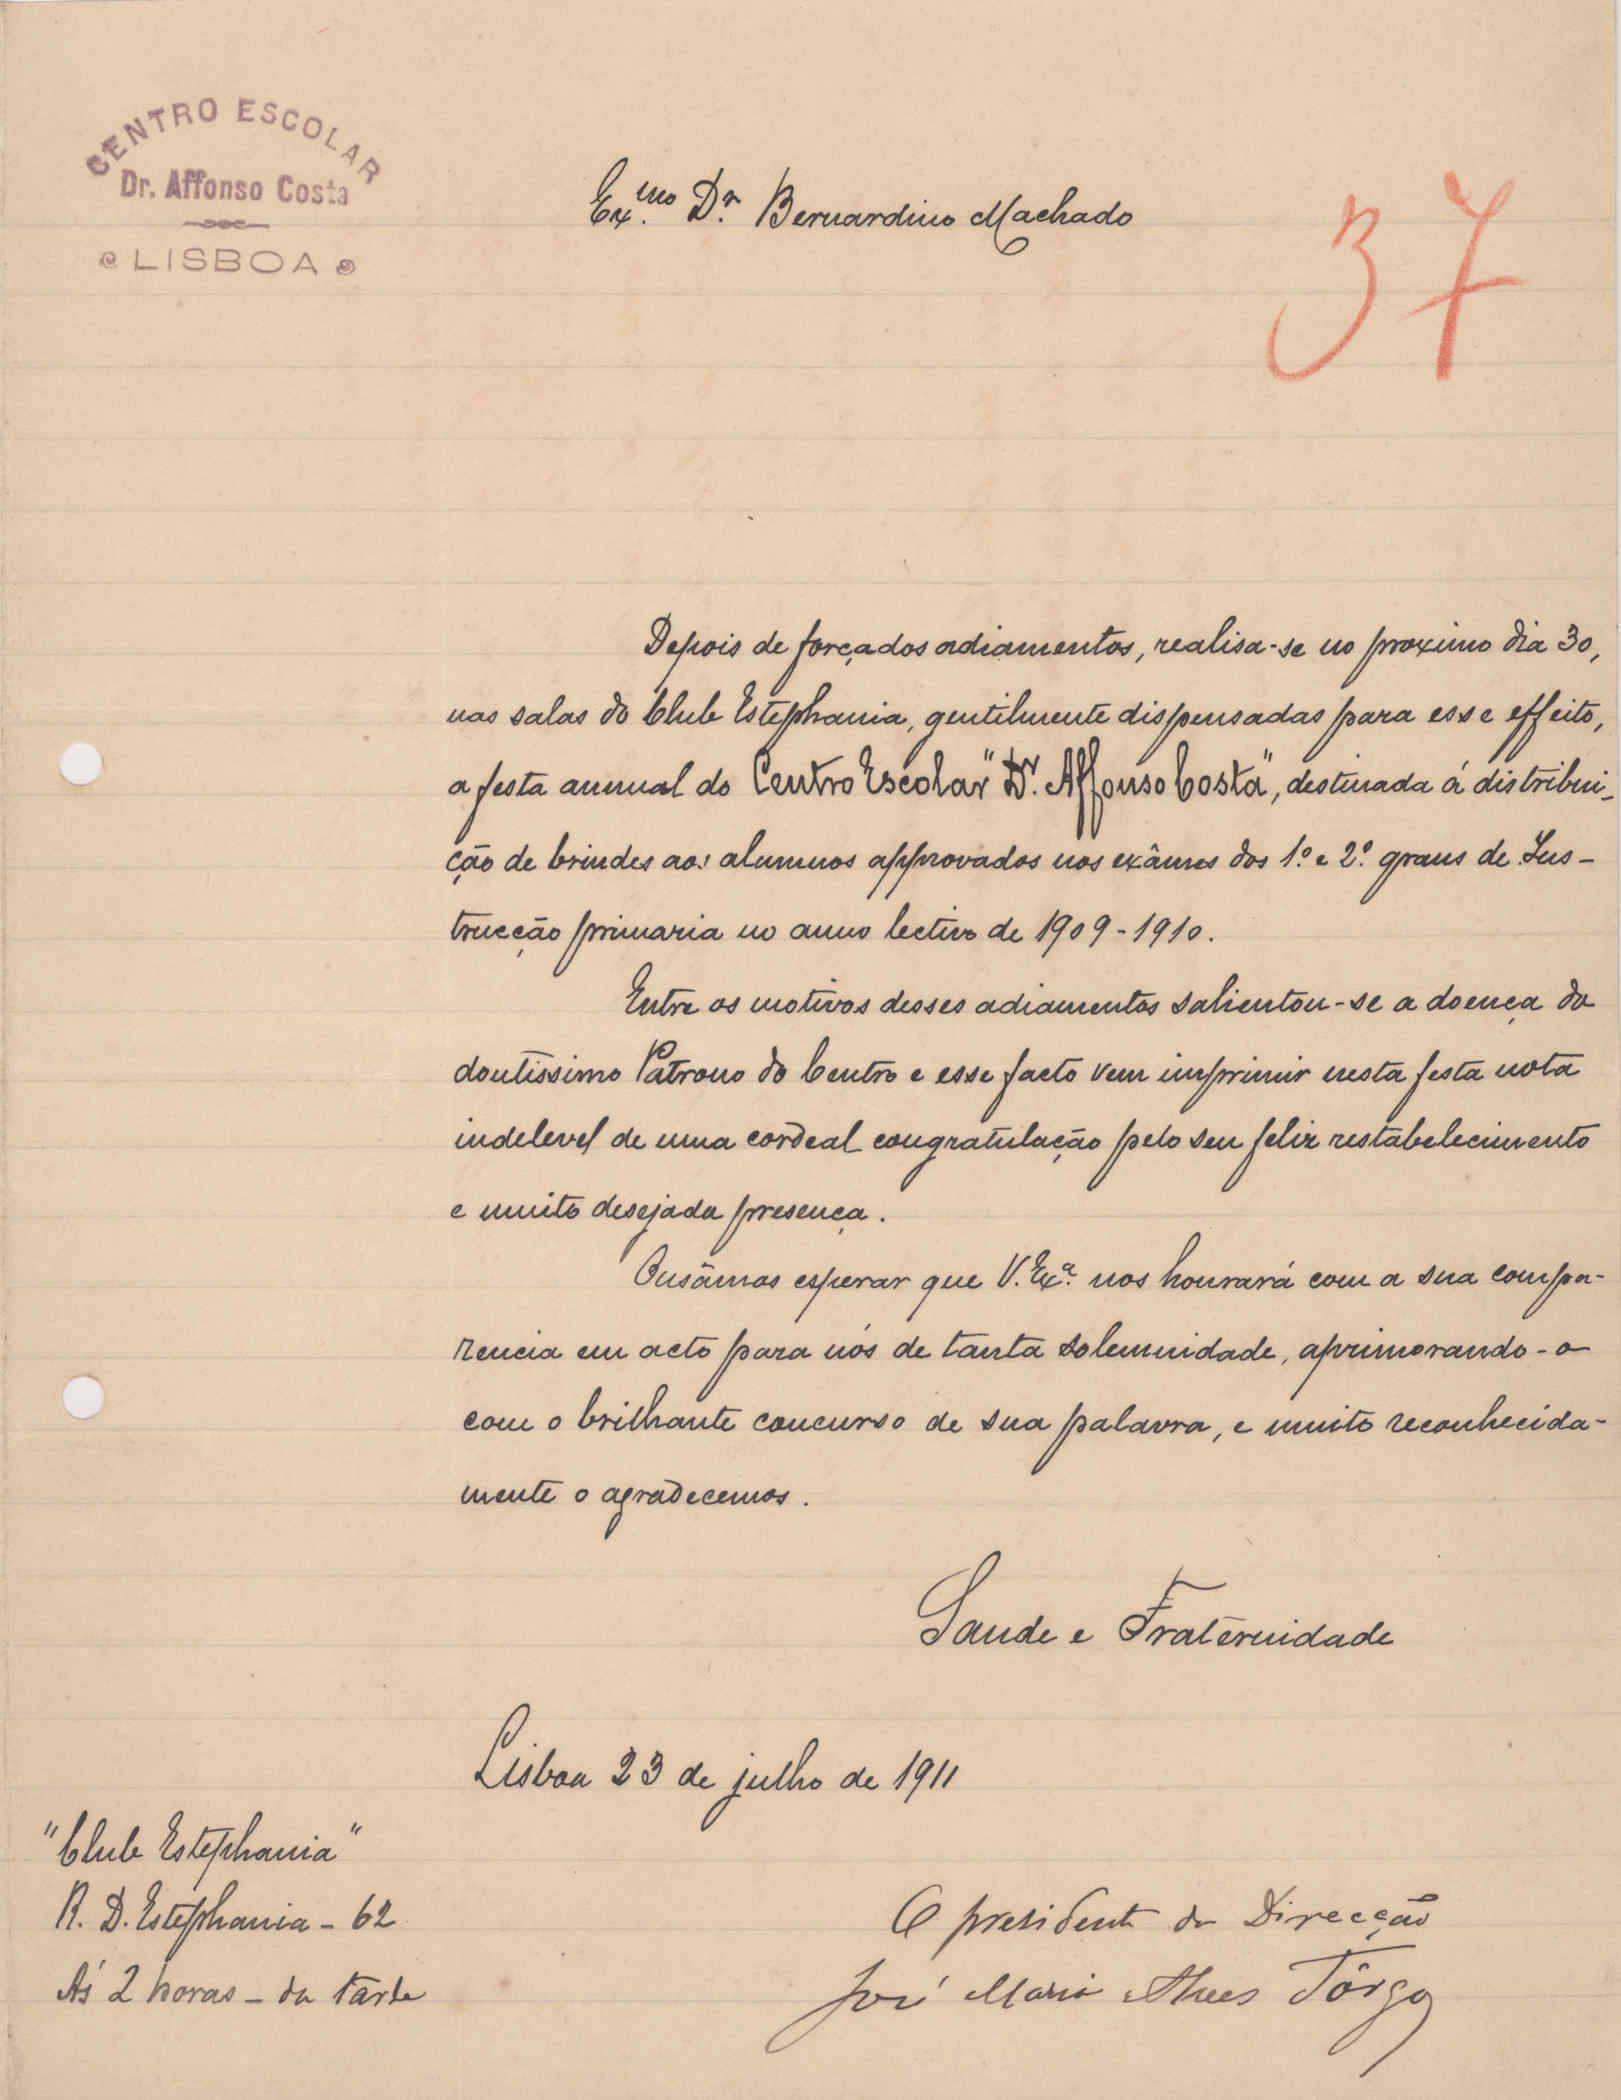 CENTRO ESCOLAR
Dr. Affonso Costa
LISBOA
Ex.mo D.r Bernardino Machado
37
Depois de forçados adiamentos, realisa-se no proximo dia 30,
nas salas do Club Estephania, gentilmente dispensadas para esse effeito,
a festa annual do Centro Escolar "Dr. Affonso Costa", destinada á distribui-
ção de brindes aos alumnos approvados nos exâmes dos 1.º e 2.º graus de Ins-
trucção primaria no anno lectivo de 1909-1910.
Entre os motivos desses adiamentos salientou-se a doença do
doutissimo Patrono do Centro e esse facto vem imprimir nesta festa nota
indelevel de uma cordeal congratulação pelo seu feliz restabelecimento
e muito desejada presença.
Ousâmos esperar que V. Ex.ª nos honrará com a sua compa-
rencia em acto para nós de tanta solemnidade, aprimorando-o
com o brilhante concurso de sua palavra, e muito reconhecida-
mente o agradecemos.
Saude e Fraternidade
Lisboa 23 de julho de 1911
"Club Estephania"
R. D. Estephania - 62
Ás 2 horas - da tarde
O presidente da Direcção
José Maria Alves Tôrgo